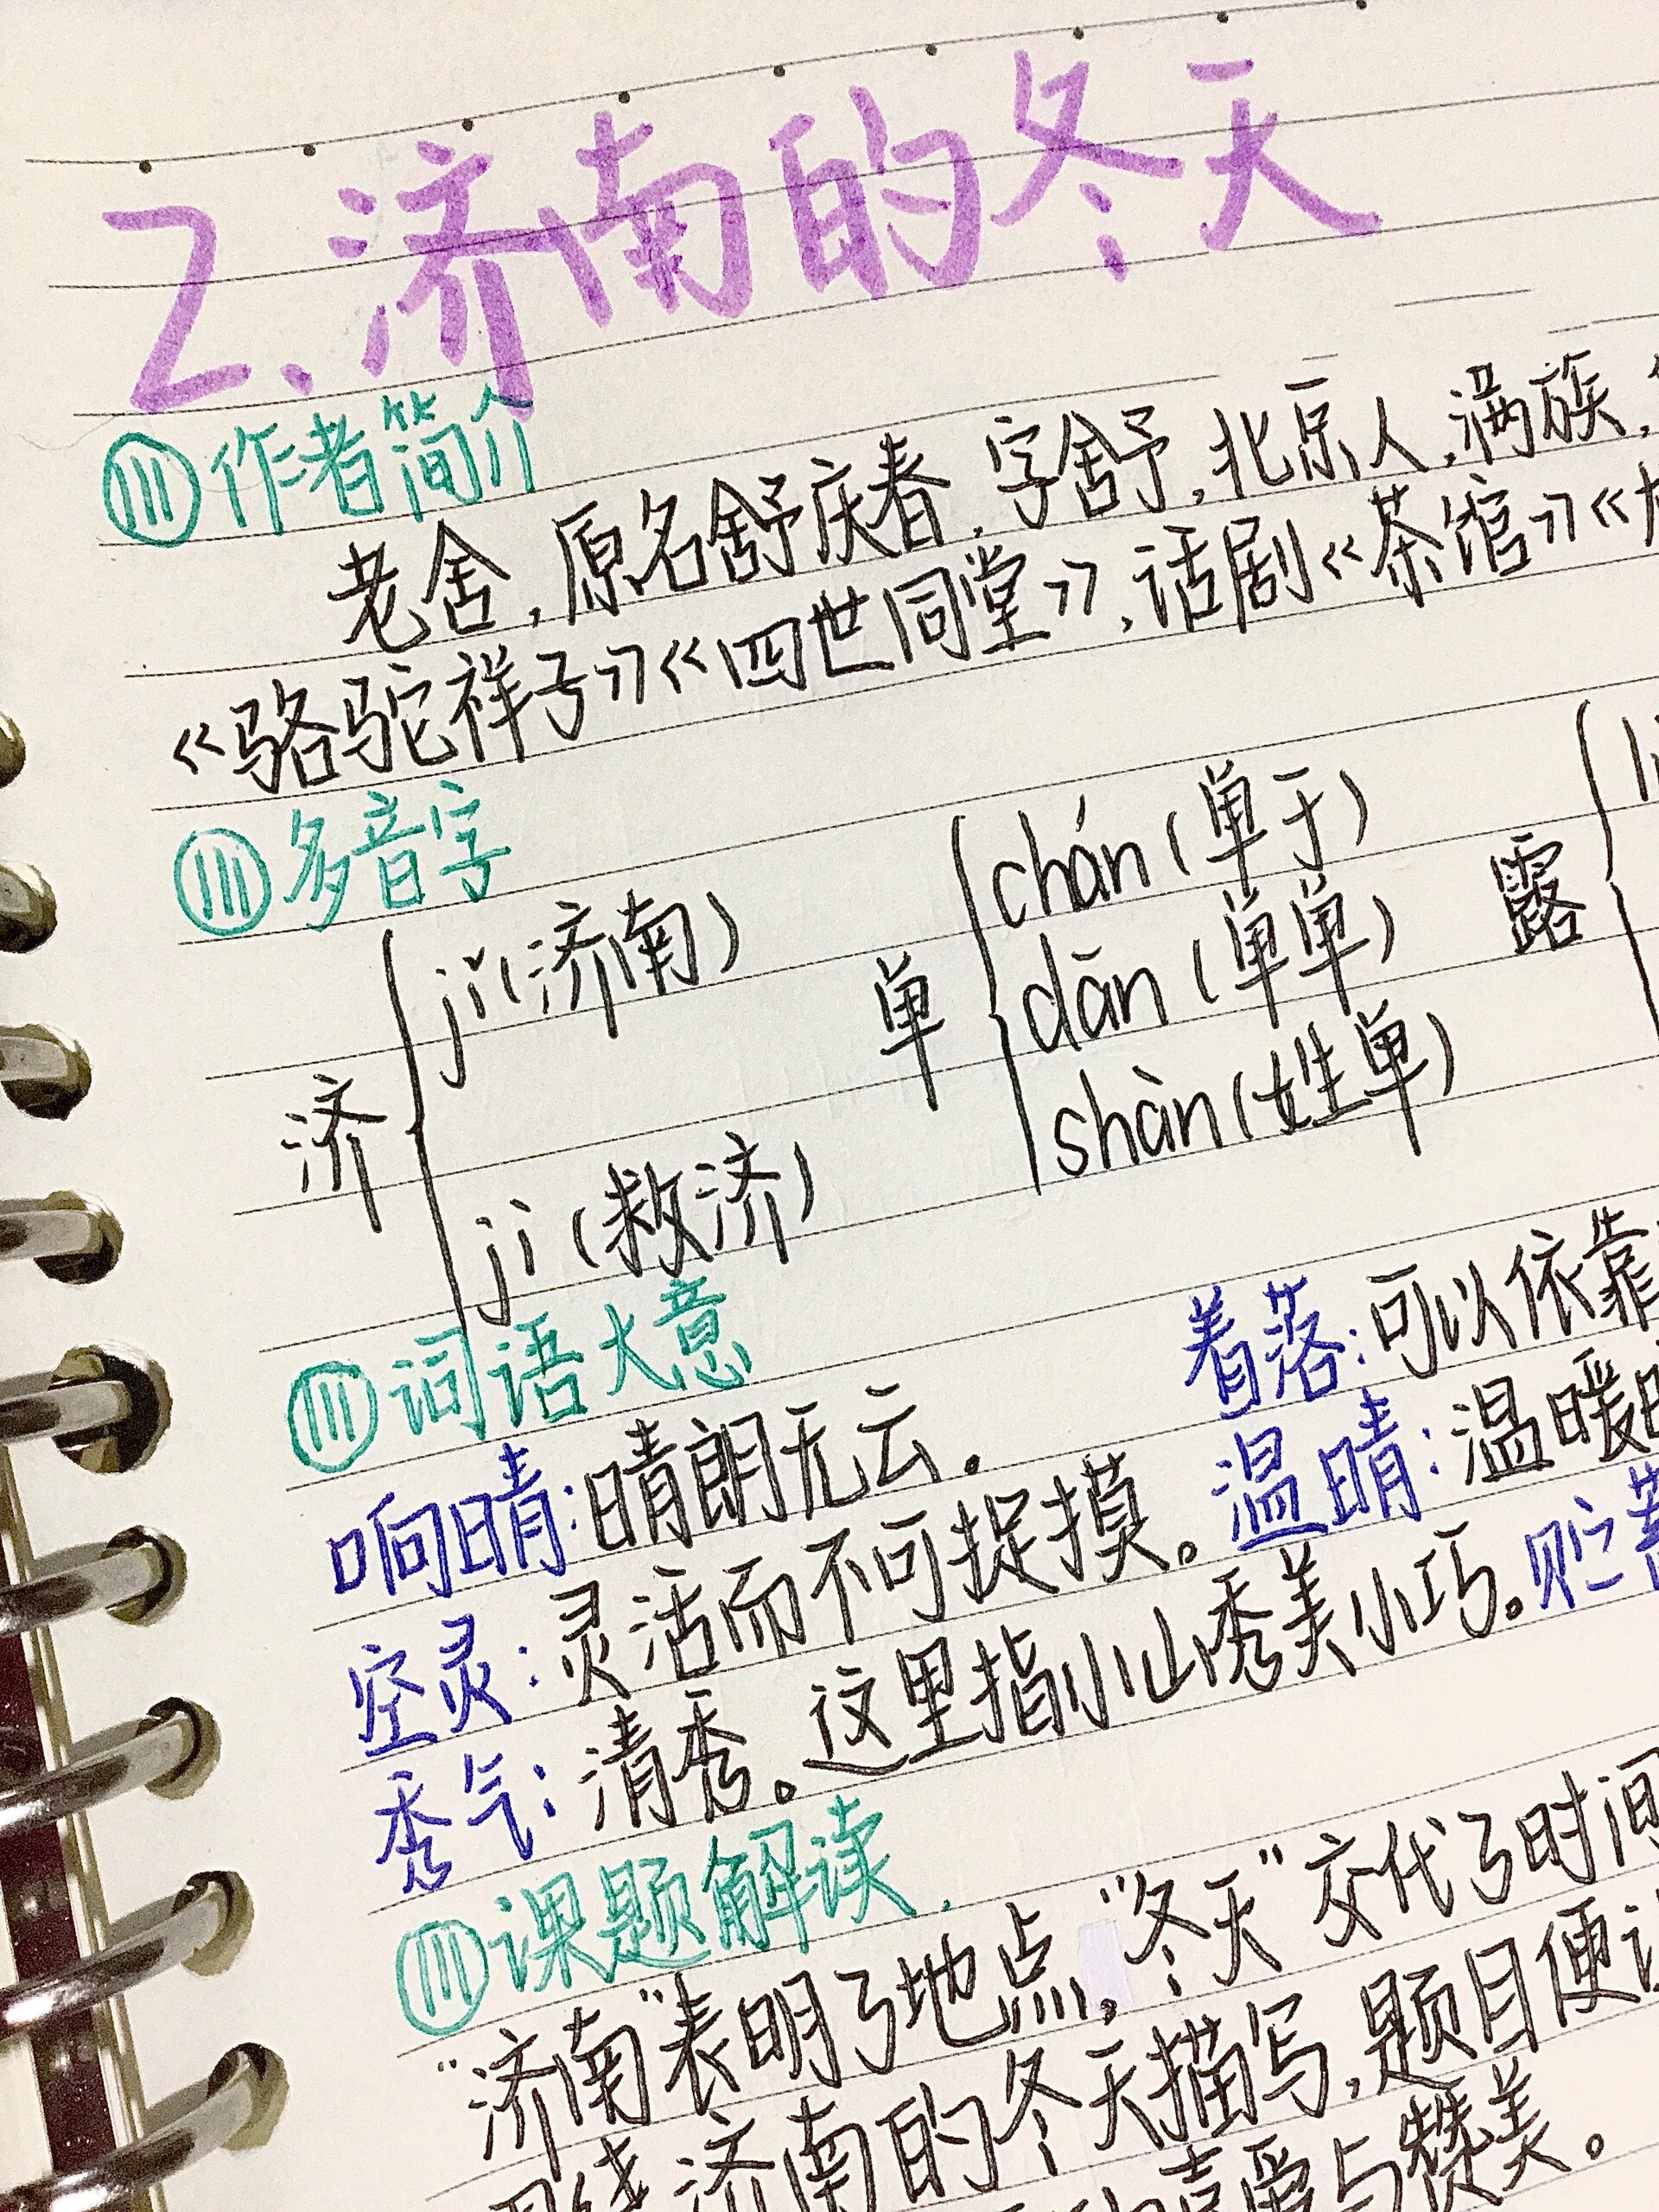 2.济南的冬天
作者简介
老舍,原名舒庆春,字舍予,北京人,满族,
《骆驼祥子》《四世同堂》,话剧《茶馆》《
多音字
济 jǐ(济南) 单 chán(单于) 露
dān(单单)
jì(救济) shàn(姓单)
词语大意 着落:可以依靠
响晴:晴朗无云。 温晴:温暖
空灵:灵活而不可捉摸。 贮蓄
秀气:清秀。这里指小山秀美小巧。
课题解读
“济南”表明了地点,“冬天”交代了时间
济南的冬天描写,题目便
喜爱与赞美。